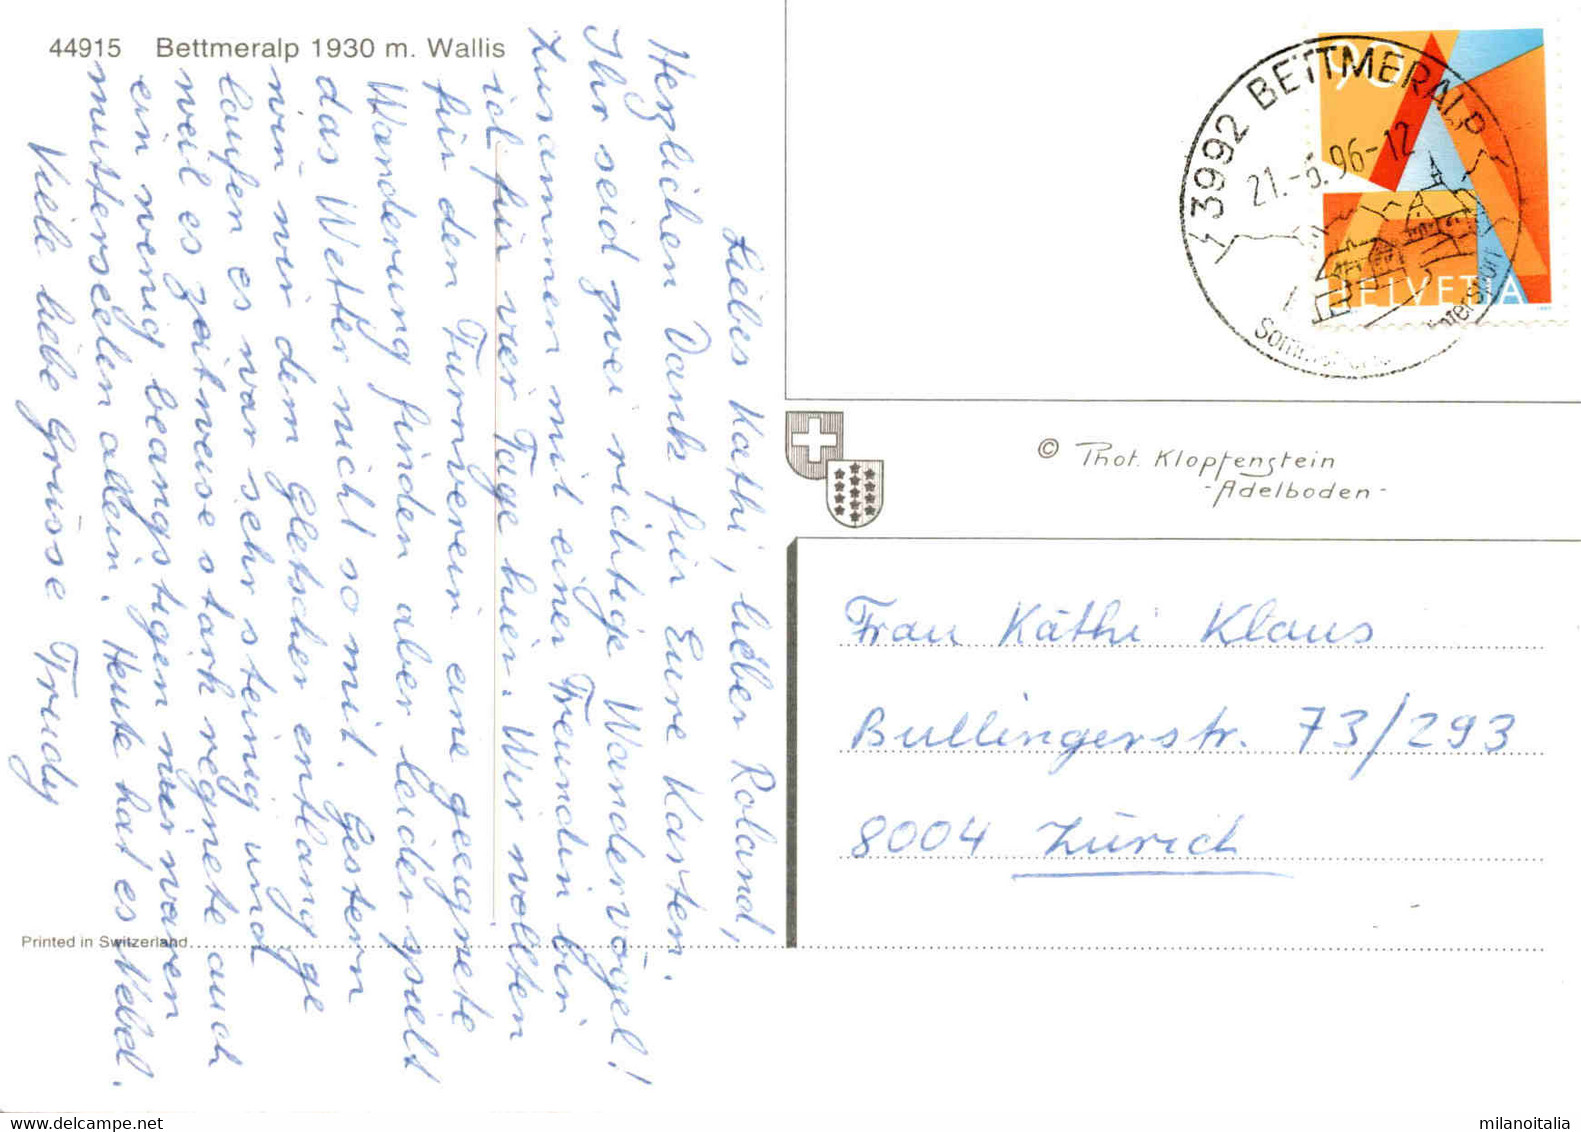 44915 Bettmeralp 1930 m. Wallis
Liebes Käthi, lieber Roland,
Herzlichen Dank für Eure Karten.
Ihr seid zwei richtige Wandervögel!
Zusammen mit einer Freundin bin
ich für vier Tage hier. Wir wollten
für den Turnverein eine geeignete
Wanderung finden aber leider spielt
das Wetter nicht so mit. Gestern
sind wir dem Gletscher entlang ge
laufen es war sehr steinig und
weil es zeitweise stark regnete auch
ein wenig beangstigen wir waren
mutterseelen allein. Heute hat es Nebel.
Viele liebe Grüsse Trudy
Printed in Switzerland
3992 BETTMERALP
21.-6.96-12
90
HELVETIA
© Phot. Klopfenstein
- Adelboden -
Frau Käthi Klaus
Bullingerstr. 73/293
8004 Zürich
milanoitalia